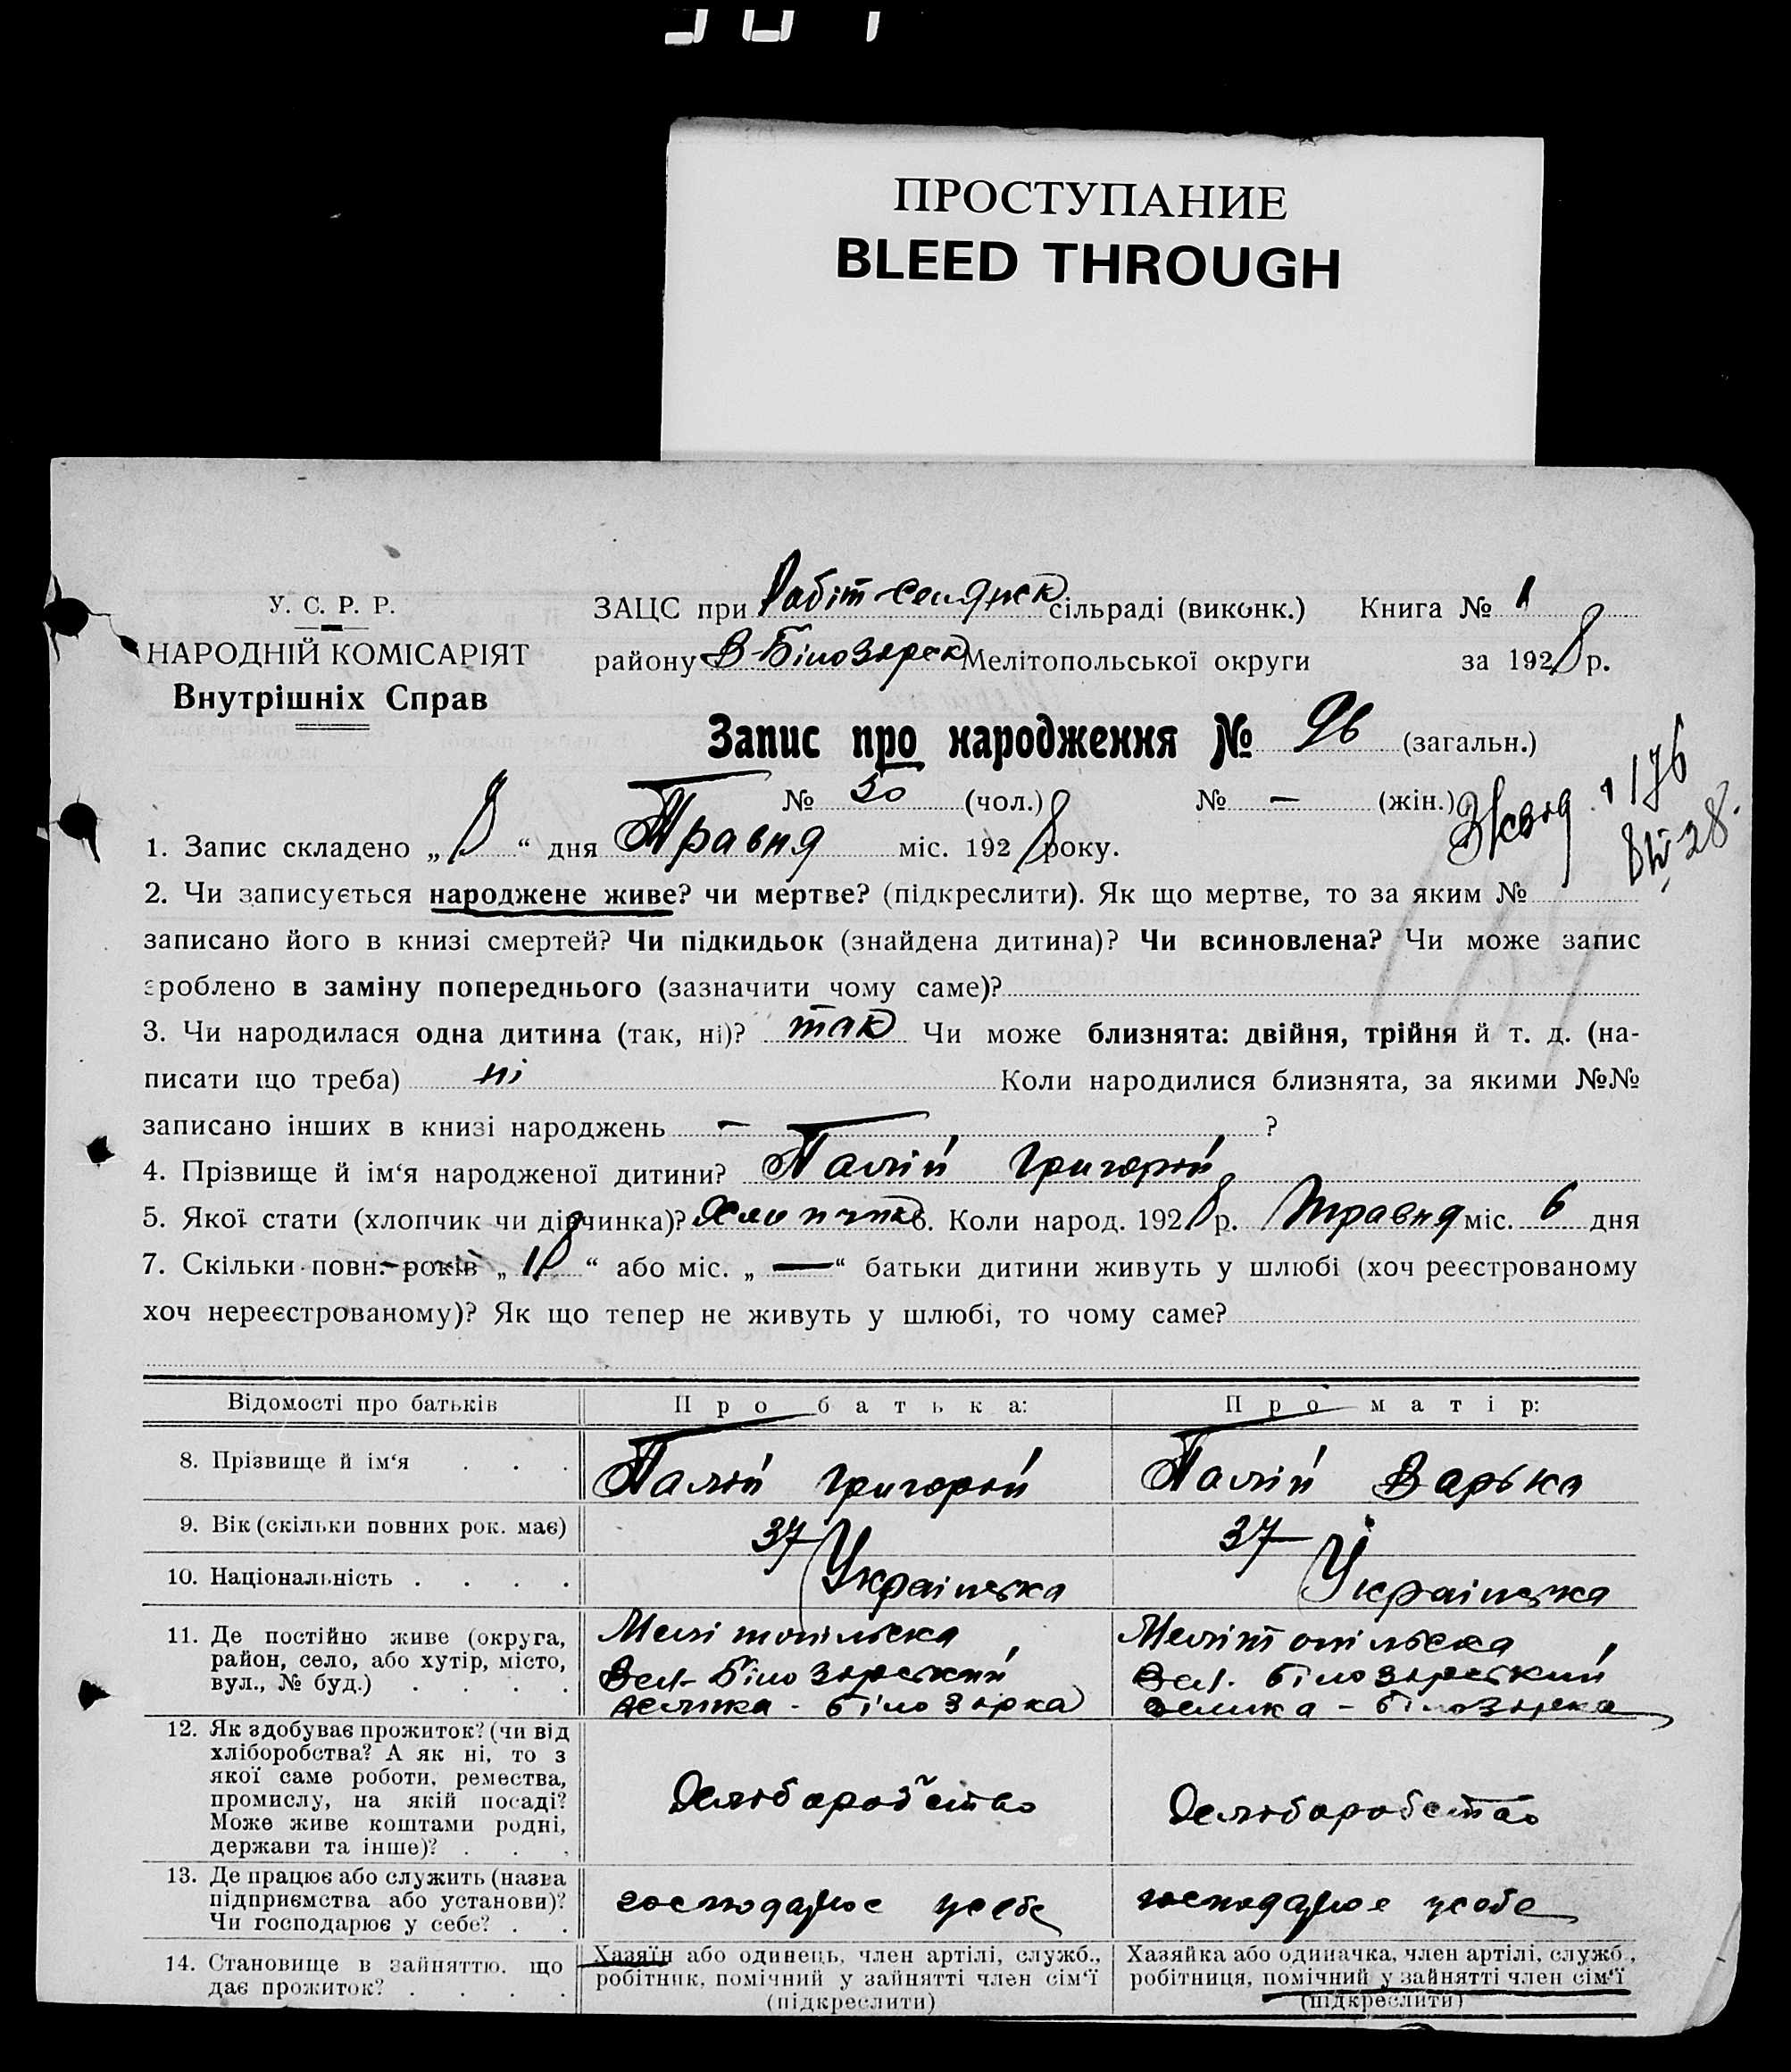 ПРОСТУПАНИЕ
BLEED THROUGH
У. С. Р. Р.
НАРОДНІЙ КОМІСАРІЯТ
Внутрішніх Справ
ЗАЦС при Робіт-селянск сільраді (виконк.) Книга № 1
району В-Білозерск Мелітопольської округи за 1928 р.
Запис про народження № 96 (загальн.)
№ 50 (чол.) № — (жін.)
1. Запис складено „8“ дня Травня міс. 1928 року.
2. Чи записується народжене живе? чи мертве? (підкреслити). Як що мертве, то за яким №
записано його в книзі смертей? Чи підкидьок (знайдена дитина)? Чи всиновлена? Чи може запис
зроблено в заміну попереднього (зазначити чому саме)?
3. Чи народилася одна дитина (так, ні)? так Чи може близнята: двійня, трійня й т. д. (на-
писати що треба) ні Коли народилися близнята, за якими №№
записано інших в книзі народжень — ?
4. Прізвище й ім‘я народженої дитини? Палій Григорій
5. Якої стати (хлопчик чи дівчинка)? Хлопчик 6. Коли народ. 1928 р. Травня міс. 6 дня
7. Скільки повн. років „18“ або міс. „—“ батьки дитини живуть у шлюбі (хоч реєстрованому
хоч нереєстрованому)? Як що тепер не живуть у шлюбі, то чому саме?
Відомості про батьків Про батька: Про матір:
8. Прізвище й ім‘я . . . Палій Григорій Палій Варька
9. Вік (скільки повних рок. має) 37 37
10. Національність . . . . Українська Українська
11. Де постійно живе (округа, Мелітопільска Мелітопільска
район, село, або хутір, місто, Вел-Білозерський Вел. Білозерський
вул., № буд.) . . . . Велика-Білозорка Велика-Білозорка
12. Як здобуває прожиток? (чи від
хліборобства? А як ні, то з
якої саме роботи, ремества,
промислу, на якій посаді? Хліборобство Хліборобство
Може живе коштами родні,
держави та інше)? . . .
13. Де працює або служить (назва
підприємства або установи)? господарює у себе господарює у себе
Чи господарює у себе? . .
14. Становище в зайняттю, що Хазяїн або одинець, член артілі, служб., Хазяйка або одиначка, член артілі, служб.,
дає прожиток? . . . . робітник, помічний у зайнятті член сім‘ї робітниця, помічний у зайнятті член сім‘ї
(підкреслити) (підкреслити)